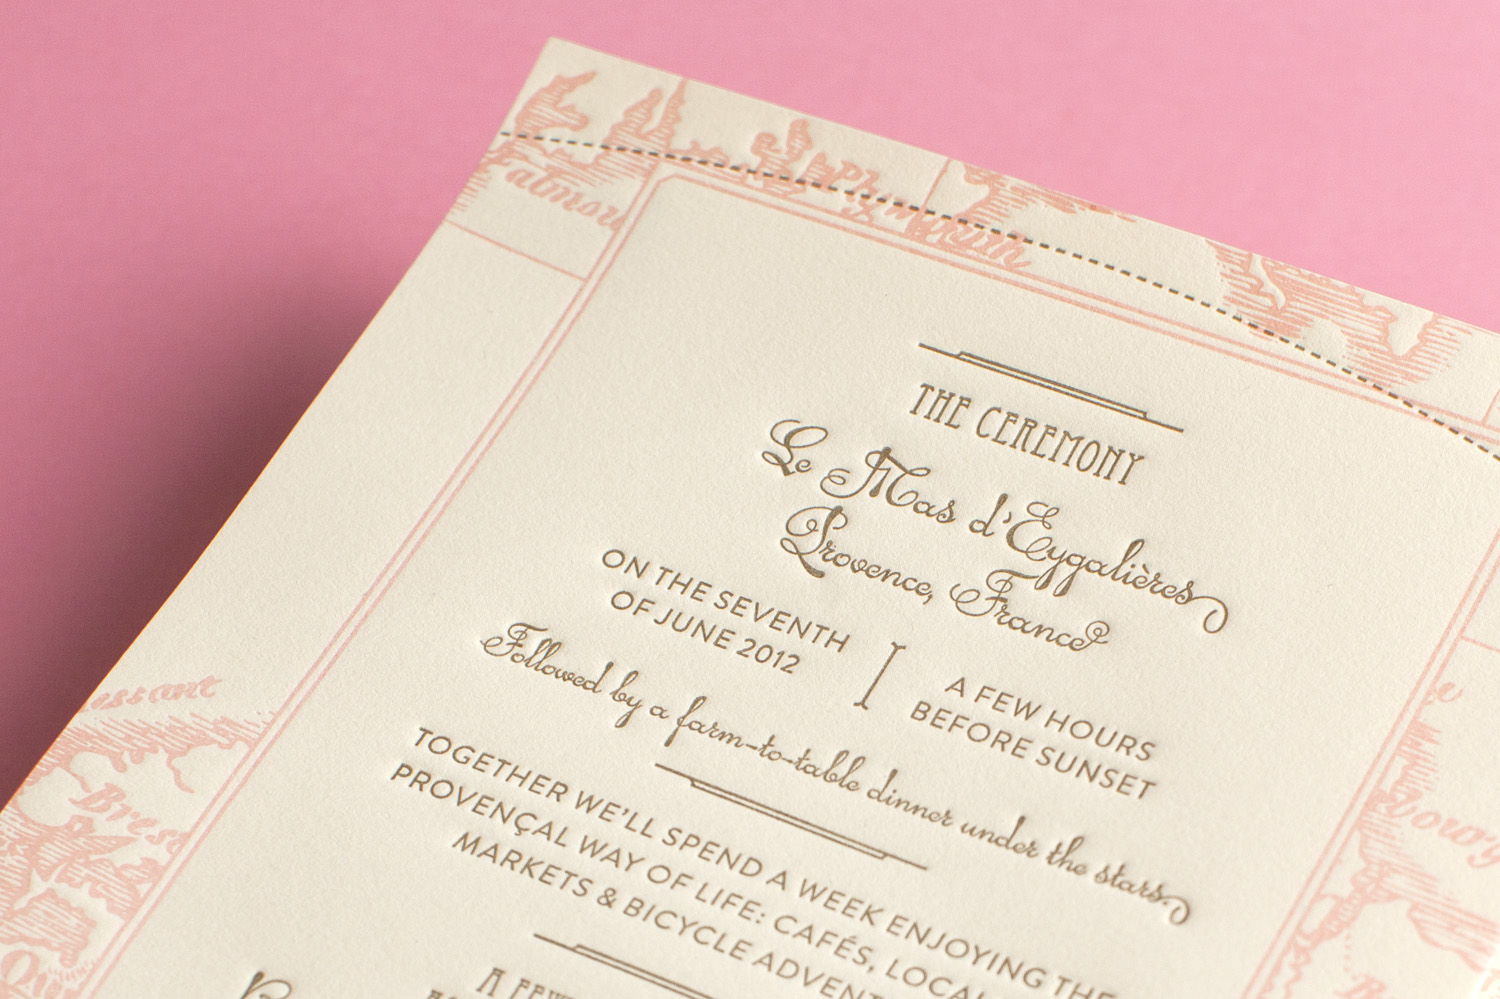 Falmou
Plymouth
THE CEREMONY
Le Mas d'Eygalières
Provence, France
ON THE SEVENTH
OF JUNE 2012
A FEW HOURS
BEFORE SUNSET
Followed by a farm-to-table dinner under the stars.
TOGETHER WE'LL SPEND A WEEK ENJOYING THE
PROVENÇAL WAY OF LIFE: CAFÉS, LOCAL
MARKETS & BICYCLE ADVEN
A FEW
essant
Brest